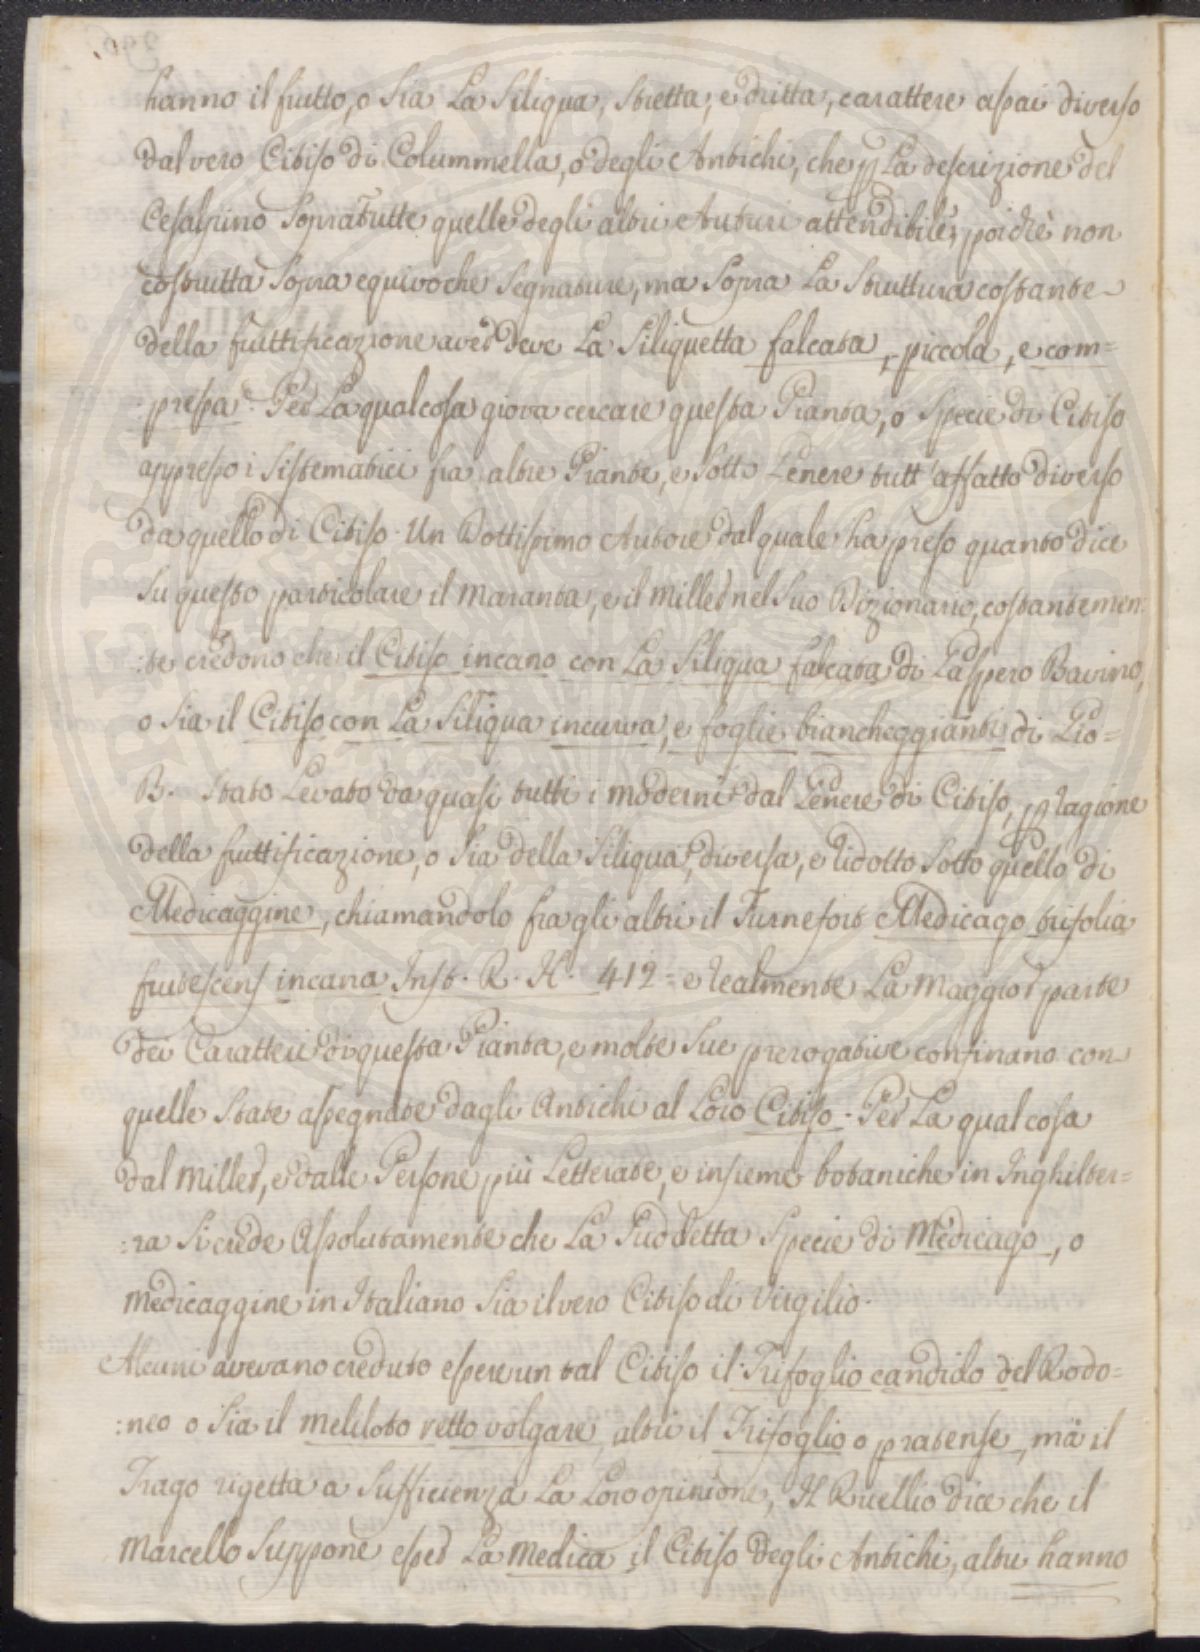 hanno il frutto, o sia La Siliqua, stretta, e dritta, carattere assai diverso
dal vero Citiso di Colummella, o degli Antichi, che p La descrizione del
Cesalpino sopra tutte quelle degli altri Auturi attendibile, poichè non
costruitta sopra equivoche segnature, ma sopra La struttura costante
della fruttificazione aver deve La Siliquetta falcata, piccola, e com=
pressa. Per La qual cosa giova cercare questa Pianta, o Specie di Citiso
appresso i Sistematici fra altre Piante, e sotto Genere tutt'affatto diverso
da quello di Citiso. Un Dottissimo Autore dal quale ha preso quanto dice
su questo particolare il Maranta, e il Miller nel suo Dizionario, costantemen:
:te credono che il Citiso incano con La Siliqua falcata di Gaspero Bavino,
o sia il Citiso con La Siliqua incurva, e foglie biancheggianti di Gio=
B. stato Levato da quasi tutti i moderni dal Genere di Citiso, p ragione
della fruttificazione, o sia della Siliqua, diversa, e ridotto sotto quello di
Medicaggine, chiamandolo fra gli altri il Turnefort Medicago trifolia
frutescens incana Inst. R. H. 412 = e realmente La maggior parte
dei Caratteri di questa Pianta, e molte sue prerogative confinano con
quelle state assegnate dagli Antichi al Loro Citiso. Per La qual cosa
dal Miller, e dalle Persone più Letterate, e insieme botaniche in Inghilter=
:ra si crede Assolutamente che La Suddetta Specie di Medicago, o
medicaggine in Italiano sia il vero Citiso di Virgilio.
Alcuni avevano creduto essere un tal Citiso il Trifoglio candido del Rodo=
:neo o sia il meliloto retto volgare, altri il Trifoglio o pratense, mà il
Trago rigetta a sufficienza La Loro opinione, Il Ruellio dice che il
Marcello suppone esser La Medica il Citiso degli Antichi, altri hanno